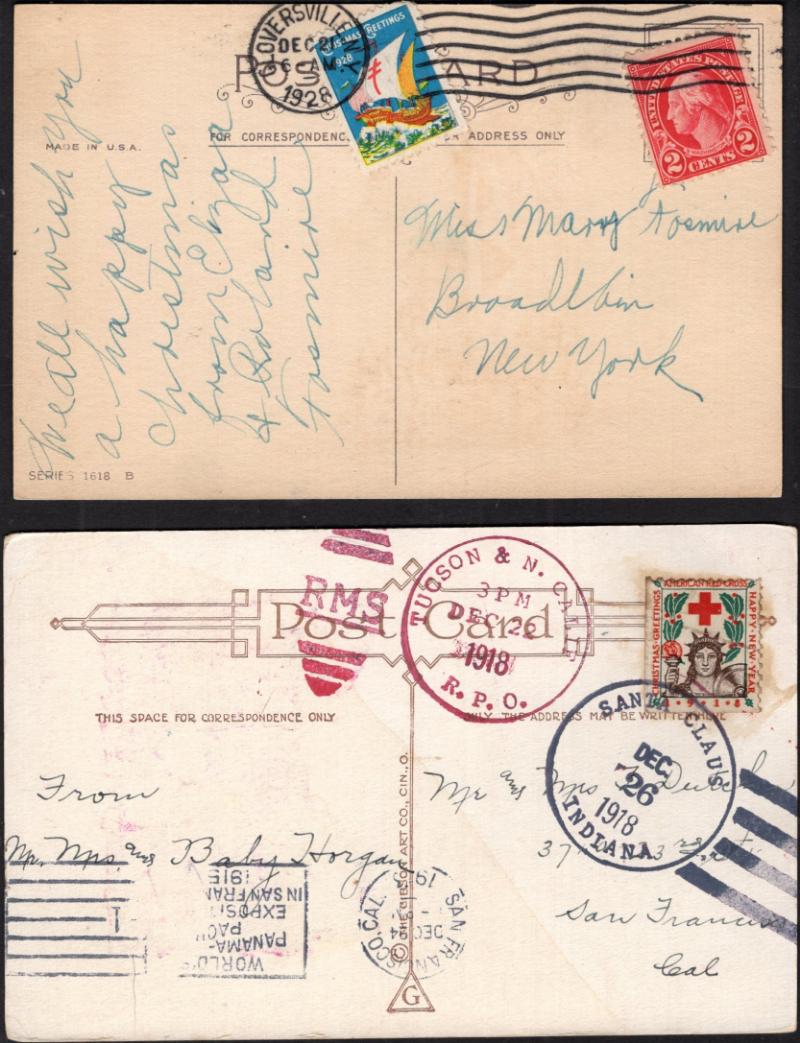 GLOVERSVILLE N.Y.
DEC 21
6 AM
1928
POST CARD
MAS GREETINGS
1928
UNITED STATES POSTAGE
2 CENTS 2
MADE IN U.S.A.
FOR CORRESPONDENCE
ADDRESS ONLY
We all wish you
a happy
christmas
from Eliza
& Roland
Tosmire
Miss Mary Tosmire
Broadlbin
New York
SERIES 1618 B
RMS
TUCSON & N. CALIF
3 PM
DEC 22
1918
R. P. O.
Post Card
AMERICAN RED CROSS
CHRISTMAS GREETINGS
HAPPY NEW YEAR
1918
THIS SPACE FOR CORRESPONDENCE ONLY
ONLY THE ADDRESS MAY BE WRITTEN HERE
SANTA CLAUS
DEC
26
1918
INDIANA
From
Mr. Mrs. and Baby Horgan
Mr and Mrs
37
3rd St.
San Francis
Cal
WORLD'S
PANAMA-
PAC
EXPOSIT
IN SAN FRAN
1915
SAN FRAN
SCO CAL.
DEC 24
191
© THE GIBSON ART CO., CIN., O.
G